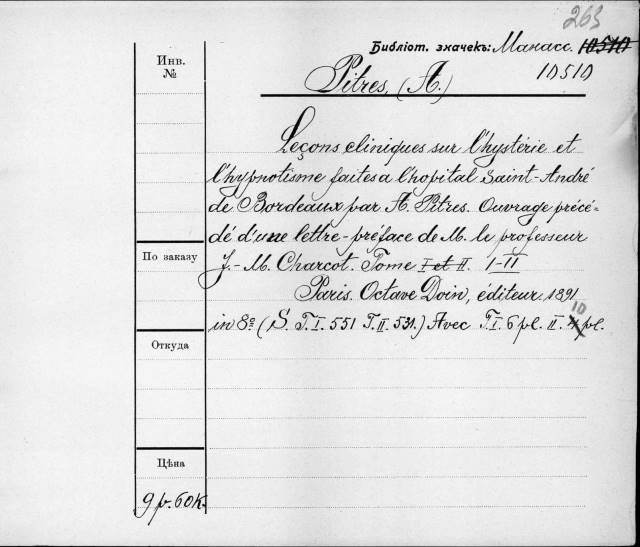 263
Библіот. значекъ: Манасс. 10510
10510
Pitres, (A.)
Инв.
№
Leçons cliniques sur l'hystérie et
l'hypnotisme faites a l'hopital Saint-André
de Bordeaux par A. Pitres. Ouvrage précé-
dé d'une lettre-préface de M. le professeur
J.-M. Charcot. Tome I et II. I-II
Paris. Octave Doin, éditeur, 1891
in 8º (S. T.I. 551 T.II. 531.) Avec T.I. 6 pl. II. 4 10 pl.
По заказу
Откуда
Цѣна
9 р. 60 к.